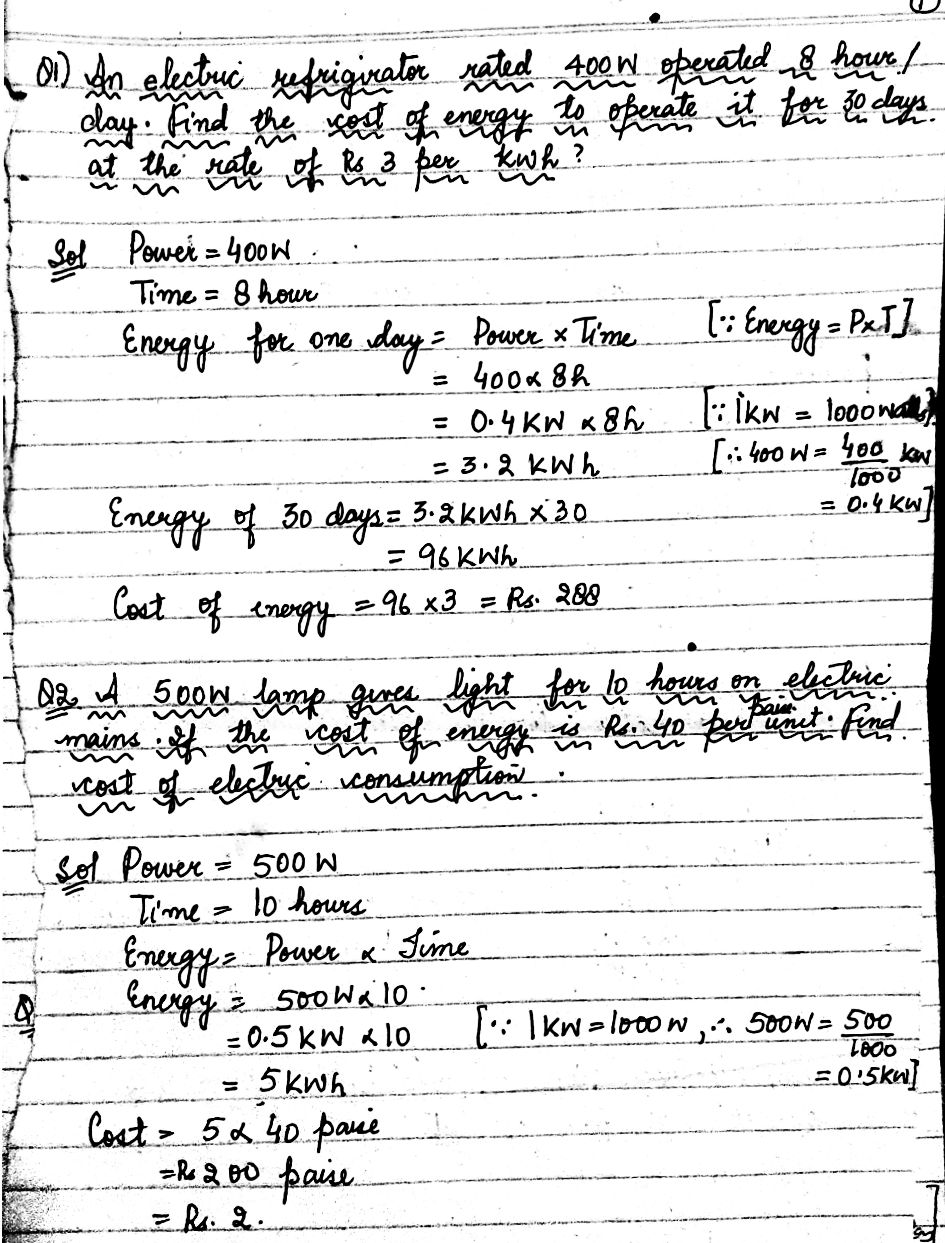 1
Q1) An electric refrigirator rated 400W operated 8 hour/
day. Find the cost of energy to operate it for 30 days.
at the rate of Rs 3 per kwh?
Sol Power = 400W.
Time = 8 hour
Energy for one day = Power × Time [∵ Energy = P×T]
= 400 × 8h
= 0.4 KW × 8h [∵ 1KW = 1000 watts]
= 3.2 KWh [∴ 400 W = 400/1000 KW
Energy of 30 days = 3.2 KWh × 30 = 0.4 KW]
= 96 KWh
Cost of energy = 96 × 3 = Rs. 288
Q2 A 500W lamp gives light for 10 hours on electric
mains. If the cost of energy is Rs. 40 paise per unit. Find
cost of electric consumption.
Sol Power = 500 W
Time = 10 hours
Energy = Power × Time
Q Energy = 500W × 10
= 0.5 KW × 10 [∵ 1 KW = 1000 W, ∴ 500W = 500/1000
= 5 KWh = 0.5KW]
Cost = 5 × 40 paise
= Rs 200 paise
= Rs. 2.